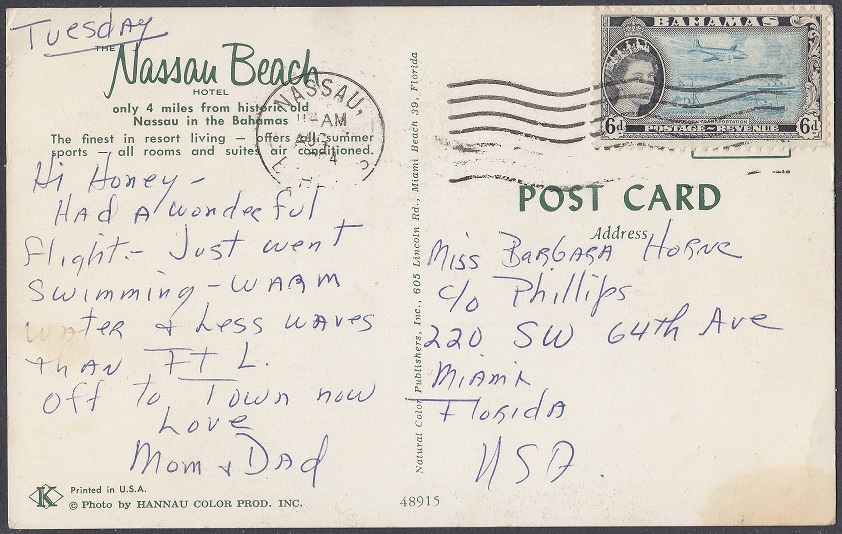 Tuesday
THE
Nassau Beach
HOTEL
only 4 miles from historic old
Nassau in the Bahamas
The finest in resort living — offers all summer
sports — all rooms and suites air conditioned.
NASSAU,
11-AM
AUG
4
Hi Honey -
Had A wonderful
flight - Just went
swimming - WARM
water & Less waves
than Ft L.
Off to Town now
Love
Mom & Dad
K
Printed in U.S.A.
© Photo by HANNAU COLOR PROD. INC.
48915
Natural Color Publishers, Inc., 605 Lincoln Rd., Miami Beach 39, Florida
BAHAMAS
6d
POSTAGE - REVENUE
6d
POST CARD
Address
Miss Barbara Horne
c/o Phillips
220 SW 64th Ave
Miami
Florida
USA.